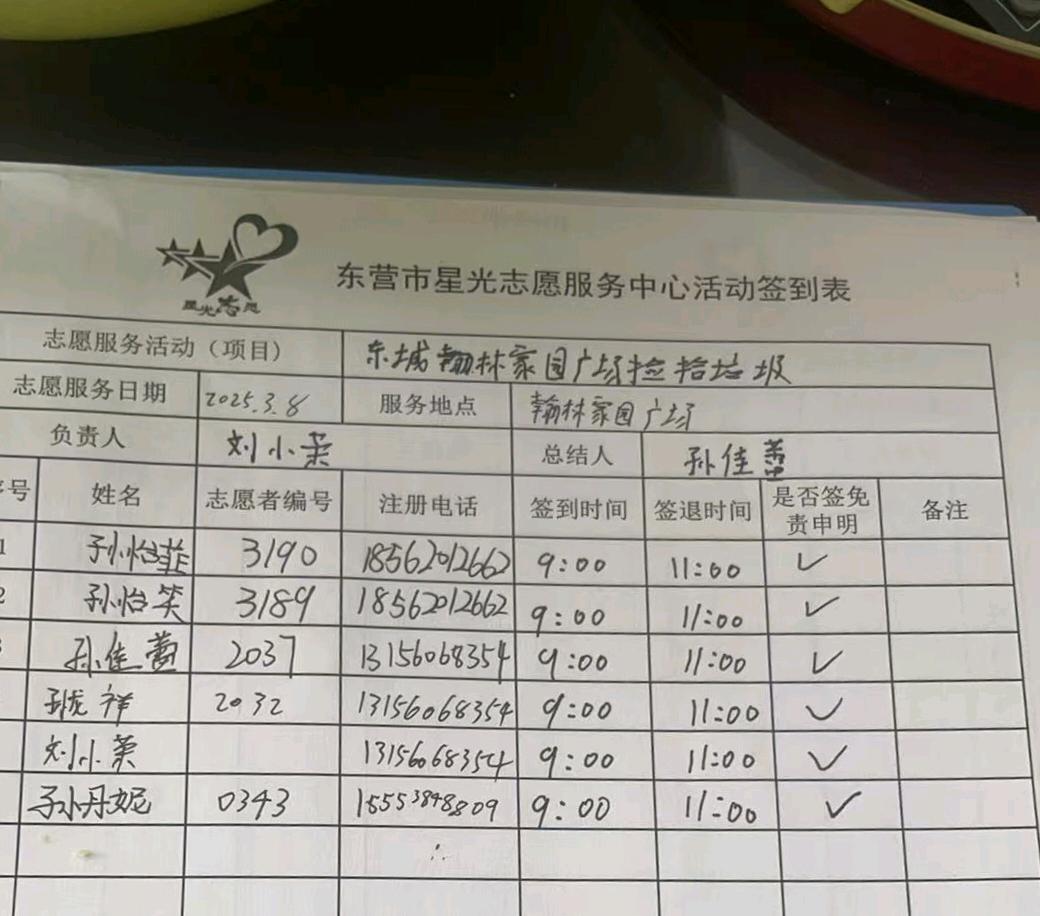 星光志愿
东营市星光志愿服务中心活动签到表
志愿服务活动（项目） 东城翰林家园广场捡拾垃圾
志愿服务日期 2025.3.8 服务地点 翰林家园广场
负责人 刘小荣 总结人 孙佳蕾
序号 姓名 志愿者编号 注册电话 签到时间 签退时间 是否签免责申明 备注
1 孙怡菲 3190 18562012662 9:00 11:00 ✓
2 孙怡笑 3189 18562012662 9:00 11:00 ✓
3 孙佳蕾 2037 13156068354 9:00 11:00 ✓
祥 2032 13156068354 9:00 11:00 ✓
刘小荣 13156068354 9:00 11:00 ✓
孙丹妮 0343 15553848809 9:00 11:00 ✓